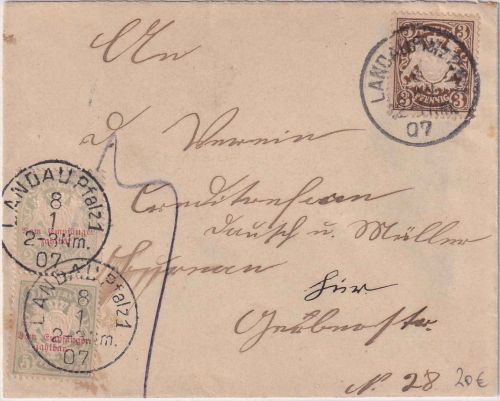 An
3 3
PFENNIG
3 3
LANDAU
07
d Verein
LANDAU Pfalz 1
8
1
2-3 Nm.
07
Vom Empfänger
zahlbar
Creditreform
Dausch u. Müller
hier
LANDAU Pfalz 1
8
1
2-3 Nm.
07
Vom Empfänger
zahlbar
5
N. 28 20€